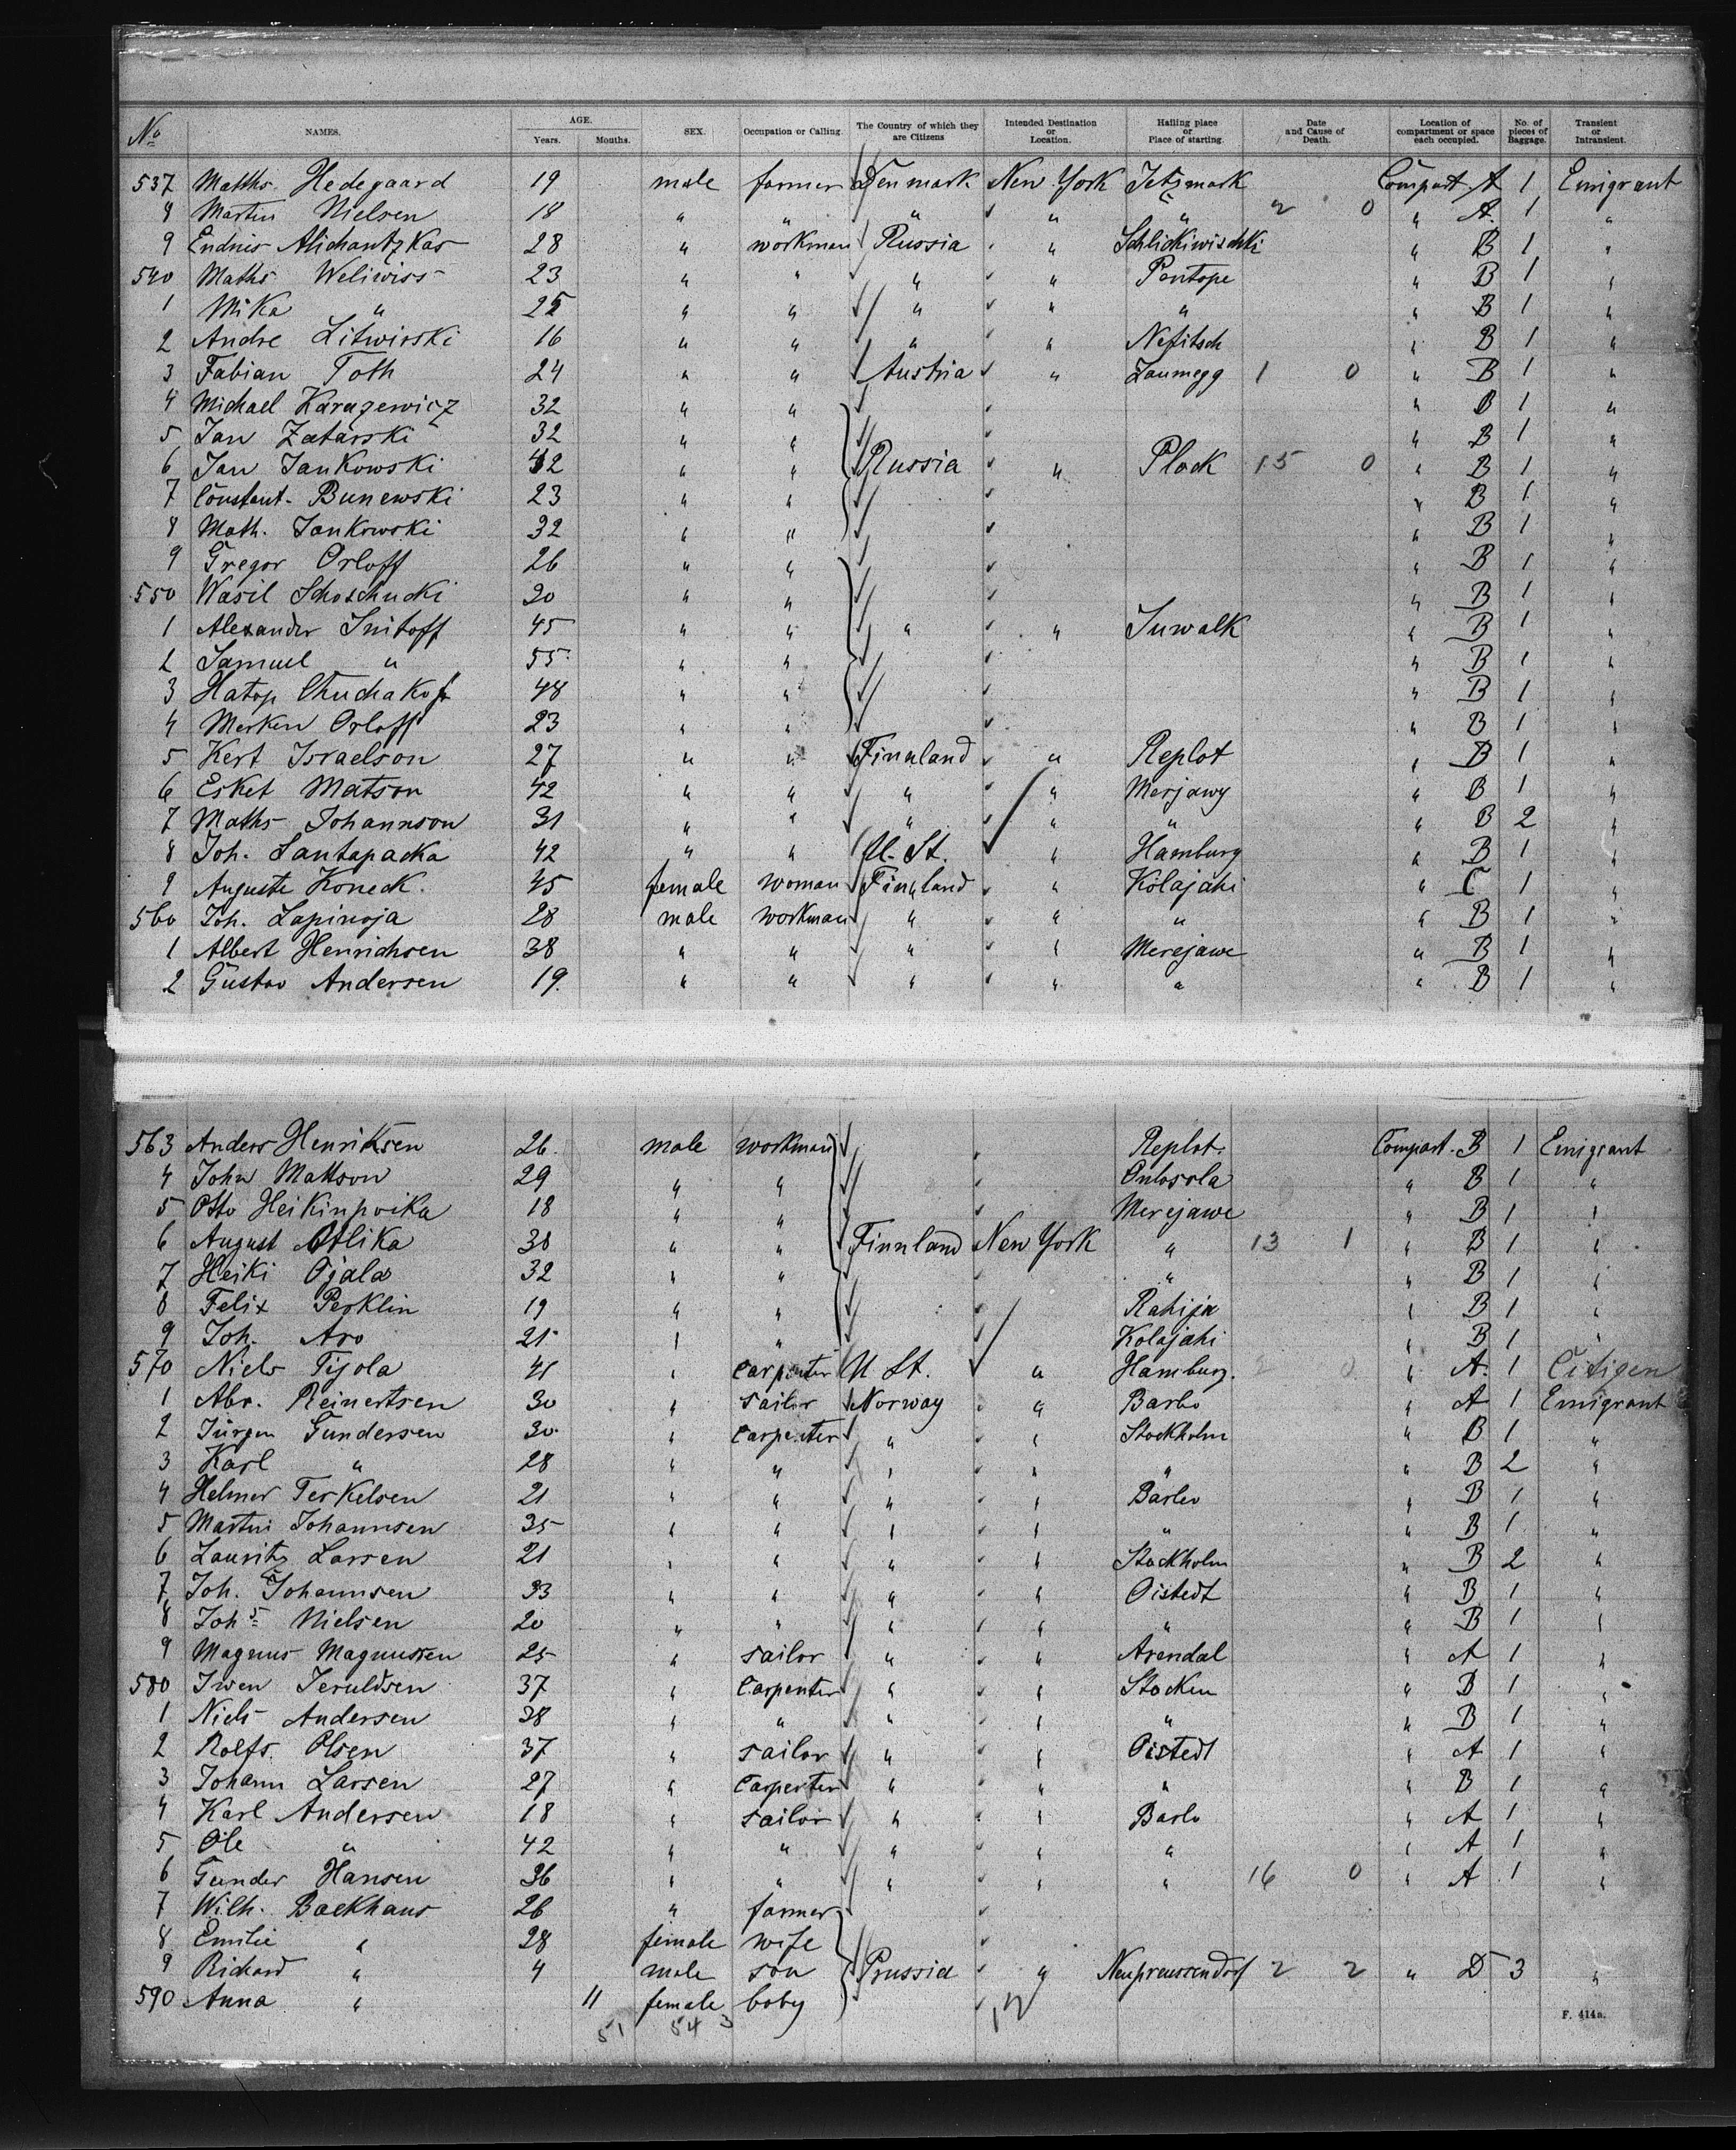 No NAMES. AGE. Years. Months. SEX. Occupation or Calling. The Country of which they are Citizens Intended Destination or Location. Hailing place or Place of starting. Date and Cause of Death. Location of compartment or space each occupied. No. of pieces of Baggage. Transient or Intransient.
537 Matths. Hedegaard 19 male farmer Denmark New York Jetzmark Compart A 1 Emigrant
8 Martin Nielsen 18 " " " " " 2 0 " A. 1 "
9 Endnis Alichantzkas 28 " workman Russia " Schlickiwischki " B 1 "
540 Maths Weliwiss 23 " " " " Pentope " B 1 "
1 Mika " 25 " " " " " " B 1 "
2 Andre Litwinski 16 " " " " Nefitsch " B 1 "
3 Fabian Toth 24 " " Austria " Zaumegg 1 0 " B 1 "
4 Michael Karazewicz 32 " " " B 1 "
5 Jan Zatarski 32 " " " B 1 "
6 Jan Jankowski 42 " " Russia " Plock 15 0 " B 1 "
7 Constant. Bunewski 23 " " " B 1 "
8 Math. Jankowski 32 " " " B 1 "
9 Gregor Orloff 26 " " " B 1 "
550 Wasil Schoschucki 20 " " " B 1 "
1 Alexander Snitoff 45 " " " " Suwalk " B 1 "
2 Samuel " 55 " " " B 1 "
3 Hatop Chuchakoff 48 " " " B 1 "
4 Merken Orloff 23 " " " B 1 "
5 Kert Israelson 27 " " Finnland " Replot " B 1 "
6 Esket Matson 42 " " " " Merjawy " B 1 "
7 Maths Johannson 31 " " " " " " B 2 "
8 Joh. Santapacka 42 " " U. St. " Hamburg " B 1 "
9 Auguste Koneck. 45 female woman Finnland " Kolajahi " C 1 "
560 Joh. Lapinoja 28 male workman " " " " B 1 "
1 Albert Henrichsen 38 " " " " Merejawe " B 1 "
2 Gustav Andersen 19. " " " " " " B 1 "
563 Anders Henriksen 26. male workman Replot. Compart. B 1 Emigrant
4 John Mattson 29 " " Onlossla " B 1 "
5 Otto Heikinpoika 18 " " Merejawe " B 1 "
6 August Atlika 30 " " Finnland New York " 13 1 " B 1 "
7 Heiki Ojala 32 " " " " B 1 "
8 Felix Perklin 19 " " Rahija " B 1 "
9 Joh. Aro 21 " " Kolajahi " B 1 "
570 Niels Tijola 41 " carpenter U St. " Hamburg. 2 0 " A. 1 Citizen
1 Abr. Reinertsen 30 " sailor Norway " Barbo " A 1 Emigrant
2 Jürgen Gundersen 30. " carpenter " " Stockholm " B 1 "
3 Karl " 28 " " " " " " B 2 "
4 Helmer Terkelsen 21 " " " " Barbo " B 1 "
5 Martin Johannsen 35 " " " " " " B 1 "
6 Lauritz Larsen 21 " " " " Stockholm " B 2 "
7 Joh. Johannsen 33 " " " " Oistedt " B 1 "
8 Johs Nielsen 20 " " " " " " B 1 "
9 Magnus Magnussen 25 " sailor " " Arendal " A 1 "
580 Iwen Teruldsen 37 " Carpenter " " Stocken " B 1 "
1 Niels Andersen 38 " " " " " " B 1 "
2 Rolfs. Olsen 37 " sailor " " Oistedt " A 1 "
3 Johann Larsen 27 " Carpenter " " " " B 1 "
4 Karl Andersen 18 " sailor " " Barbo " A 1 "
5 Ole " 42 " " " " " " A 1 "
6 Gunder Hansen 36 " " " " " 16 0 " A 1 "
7 Wilh. Backhaus 26 " farmer
8 Emilie " 28 female wife
9 Richard " 4 male son Prussia " Neupreussendorf 2 2 " D 3 "
590 Anna " 11 female baby
51 54 3 12
F. 414a.